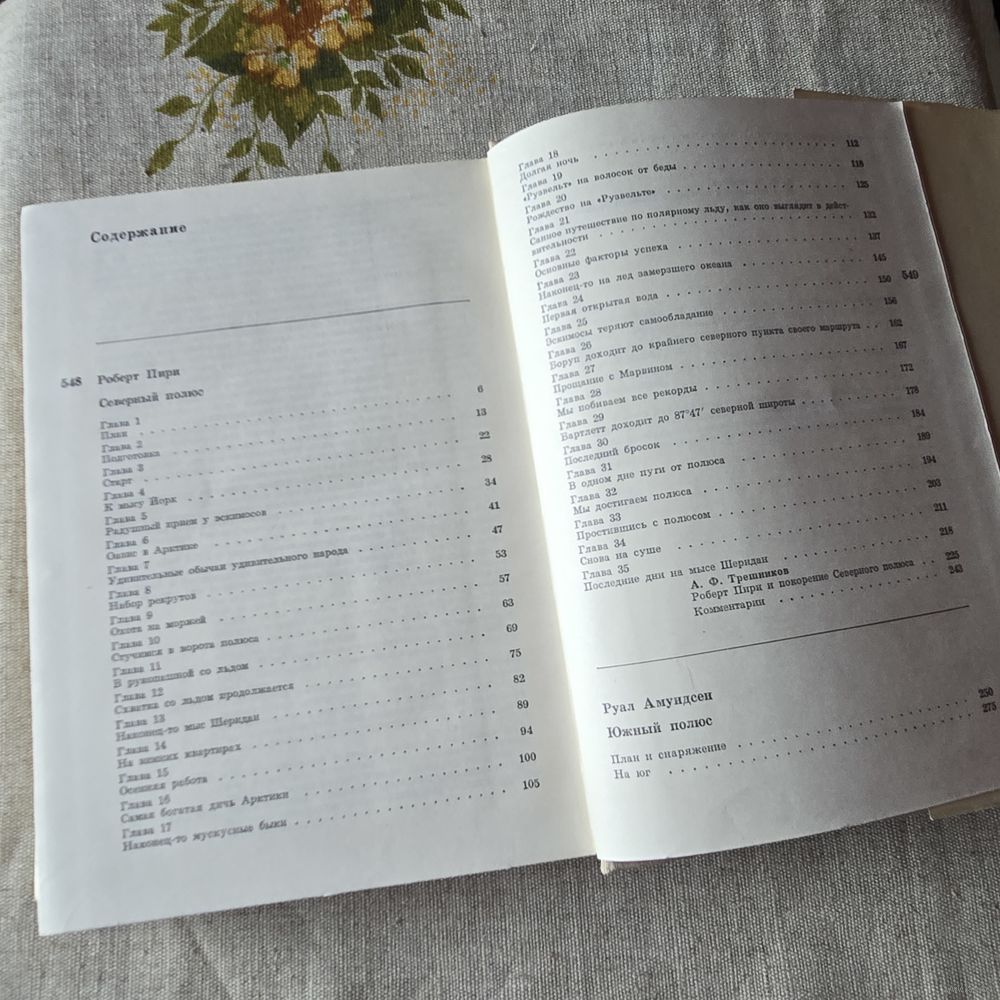 Содержание
548 Роберт Пири
Северный полюс
Глава 1
План 6
Глава 2
Подготовка 13
Глава 3
Старт 22
Глава 4
К мысу Йорк 28
Глава 5
Радушный прием у эскимосов 34
Глава 6
Оазис в Арктике 41
Глава 7
Удивительные обычаи удивительного народа 47
Глава 8
Набор рекрутов 53
Глава 9
Охота на моржей 57
Глава 10
Стучимся в ворота полюса 63
Глава 11
В рукопашной со льдом 69
Глава 12
Схватка со льдом продолжается 75
Глава 13
Наконец-то мыс Шеридан 82
Глава 14
На зимних квартирах 89
Глава 15
Осенняя работа 94
Глава 16
Самая богатая дичь Арктики 100
Глава 17
Наконец-то мускусные быки 105
Глава 18
Долгая ночь 112
Глава 19
«Рузвельт» на волосок от беды 118
Глава 20
Рождество на «Рузвельте» 125
Глава 21
Санное путешествие по полярному льду, как оно выглядит в дейст-
вительности 132
Глава 22
Основные факторы успеха 137
Глава 23
Наконец-то на лед замерзшего океана 145
549
Глава 24
Первая открытая вода 150
Глава 25
Эскимосы теряют самообладание 156
Глава 26
Боруп доходит до крайнего северного пункта своего маршрута 162
Глава 27
Прощание с Марвином 167
Глава 28
Мы побиваем все рекорды 172
Глава 29
Бартлетт доходит до 87°47′ северной широты 178
Глава 30
Последний бросок 184
Глава 31
В одном дне пути от полюса 189
Глава 32
Мы достигаем полюса 194
Глава 33
Простившись с полюсом 203
Глава 34
Снова на суше 211
Глава 35
Последние дни на мысе Шеридан 218
А. Ф. Трешников
Роберт Пири и покорение Северного полюса 225
Комментарии 243
Руал Амундсен
Южный полюс
План и снаряжение 250
На юг 275